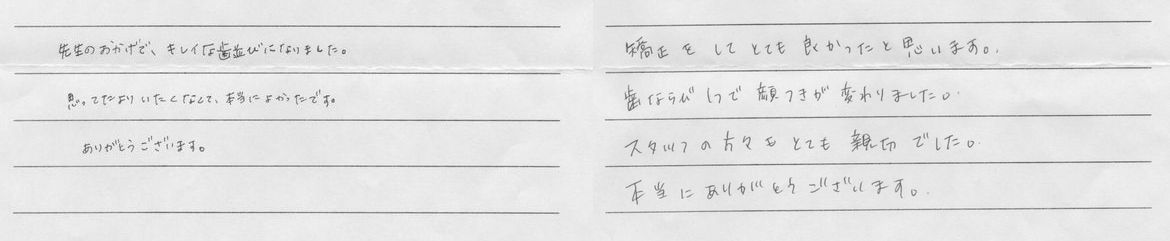 先生のおかげで、キレイな歯並びになりました。
思ってたよりいたくなくて、本当によかったです。
ありがとうございます。
矯正をしてとても良かったと思います。
歯ならび1つで顔つきが変わりました。
スタッフの方々もとても親切でした。
本当にありがとうございます。